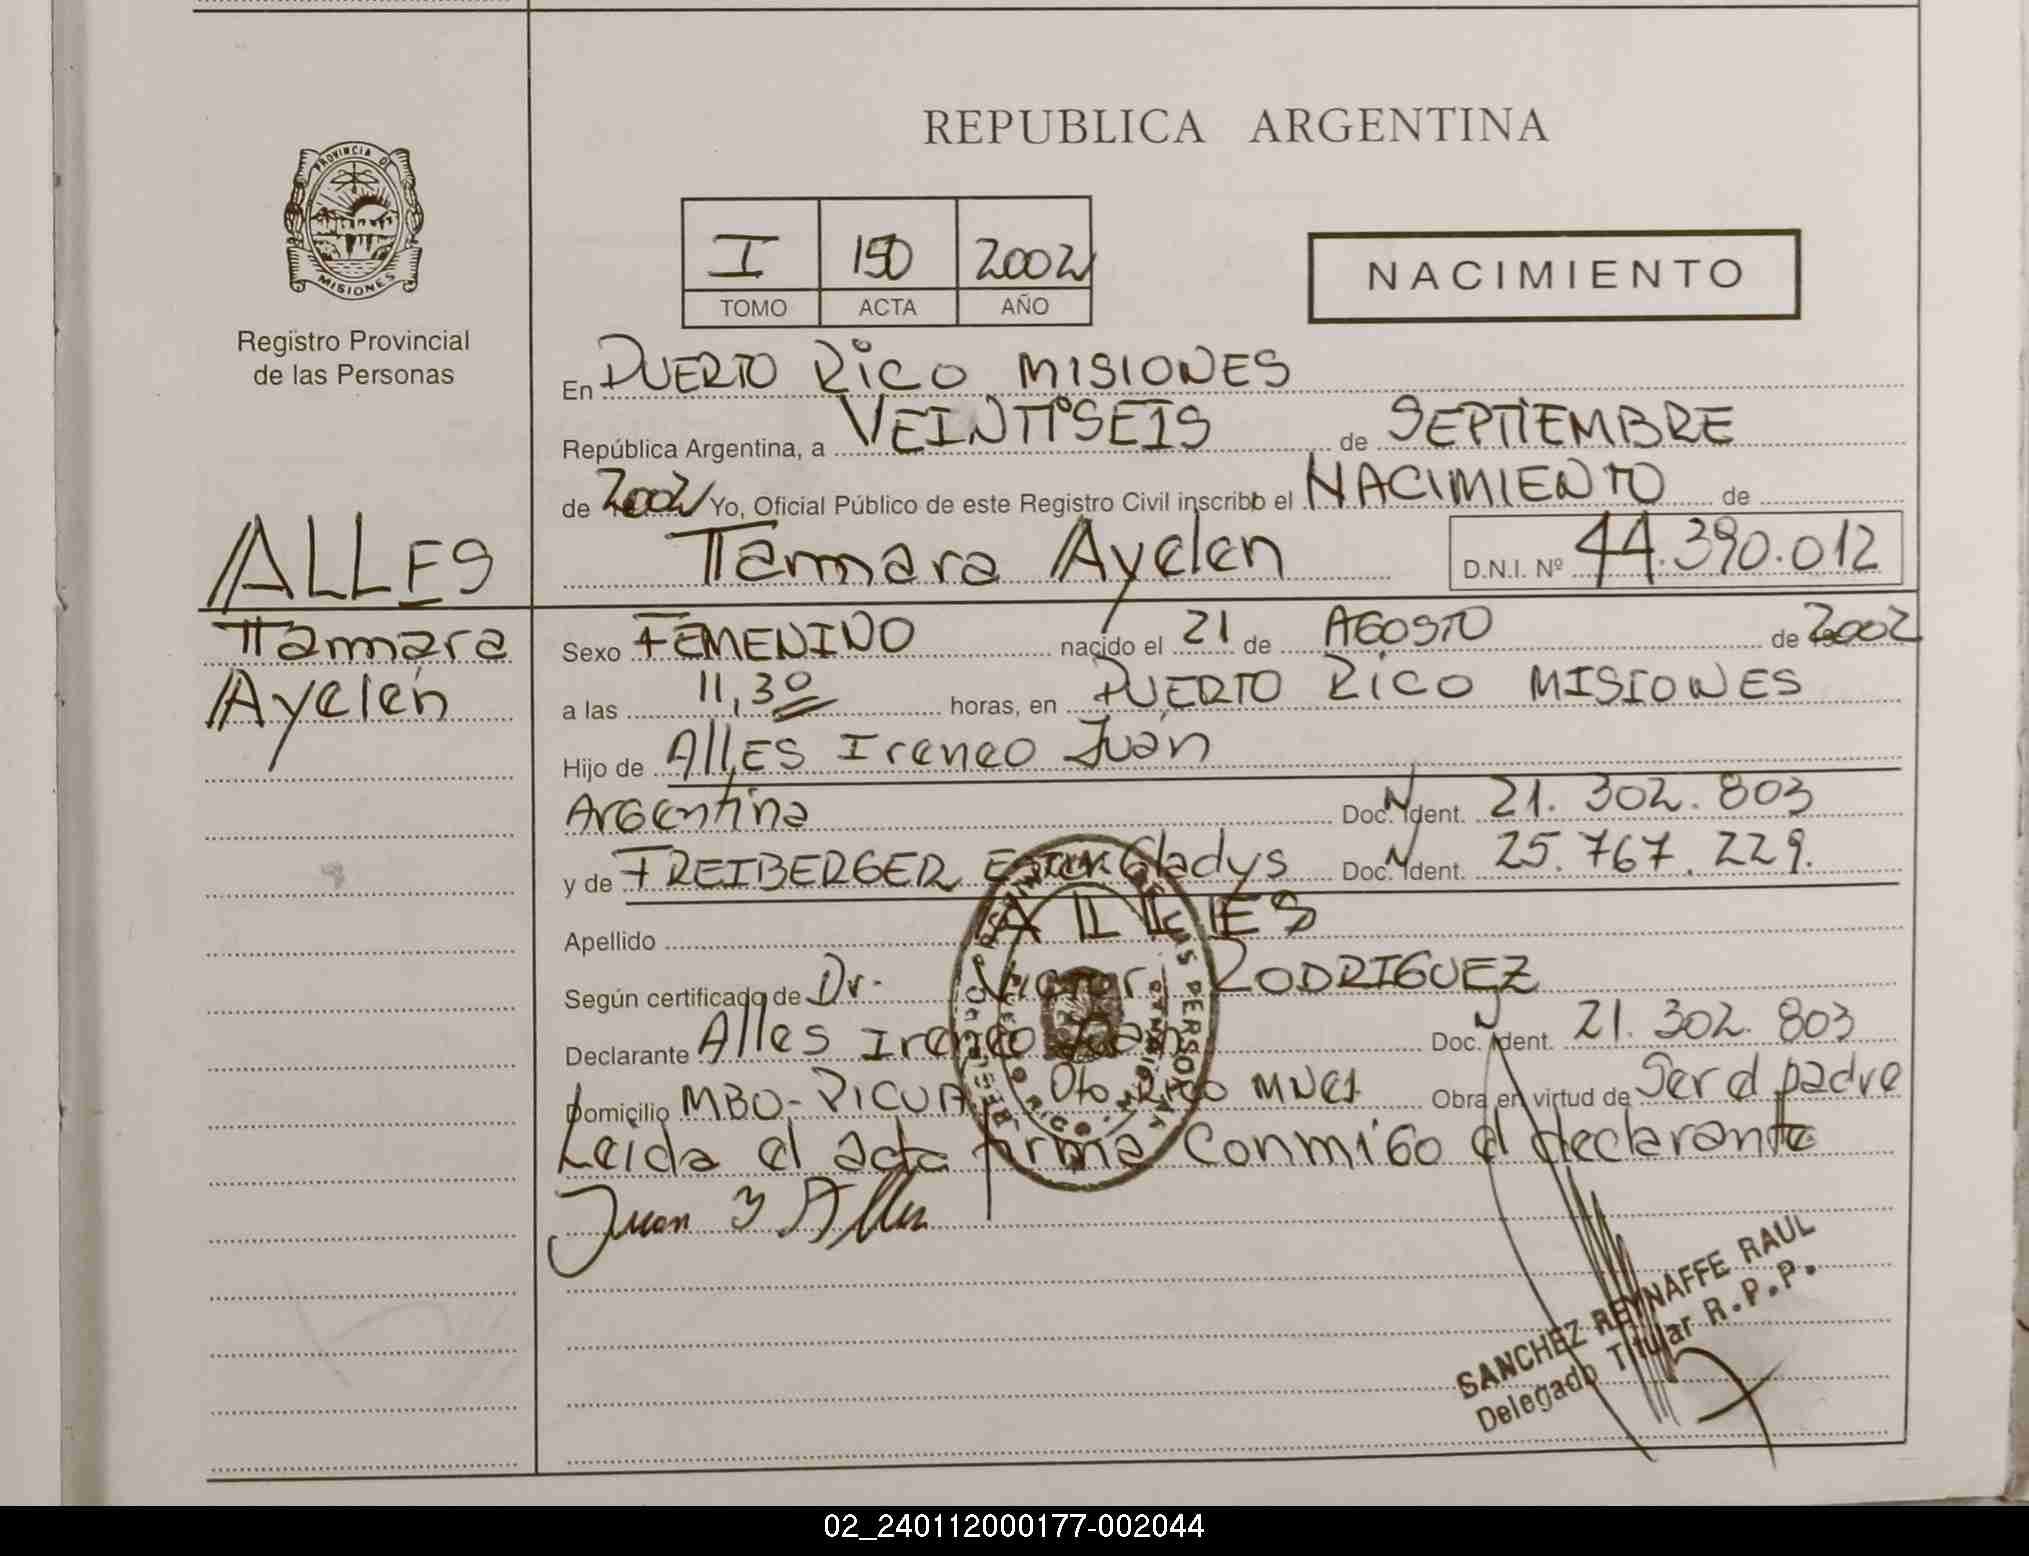 REPUBLICA ARGENTINA
PROVINCIA D
MISIONES
Registro Provincial
de las Personas
I 150 2002
TOMO ACTA AÑO
NACIMIENTO
En PUERTO RICO MISIONES
República Argentina, a VEINTISEIS de SEPTIEMBRE
de 2002 Yo, Oficial Público de este Registro Civil inscribo el NACIMIENTO de
Tamara Ayelen D.N.I. Nº 44.390.012
ALLES
Tamara
Ayelen
Sexo FEMENINO nacido el 21 de AGOSTO de 2002
a las 11,30 horas, en PUERTO RICO MISIONES
Hijo de AllES Ireneo Juan
Argentina Doc. Ident. N 21.302.803
y de FREIBERGER Gladys Doc. Ident. N 25.767.229.
Apellido ALLES
Según certificado de Dr. Victor RODRIGUEZ
Declarante Alles Ireneo Juan Doc. Ident. N 21.302.803
Domicilio MBO-PICUA Pto Rico MNES Obra en virtud de Ser el padre
Leida el acta firma conmigo el declarante
Juan Y Alles
SANCHEZ REYNAFFE RAUL
Delegado Titular R.P.P.
02_240112000177-002044